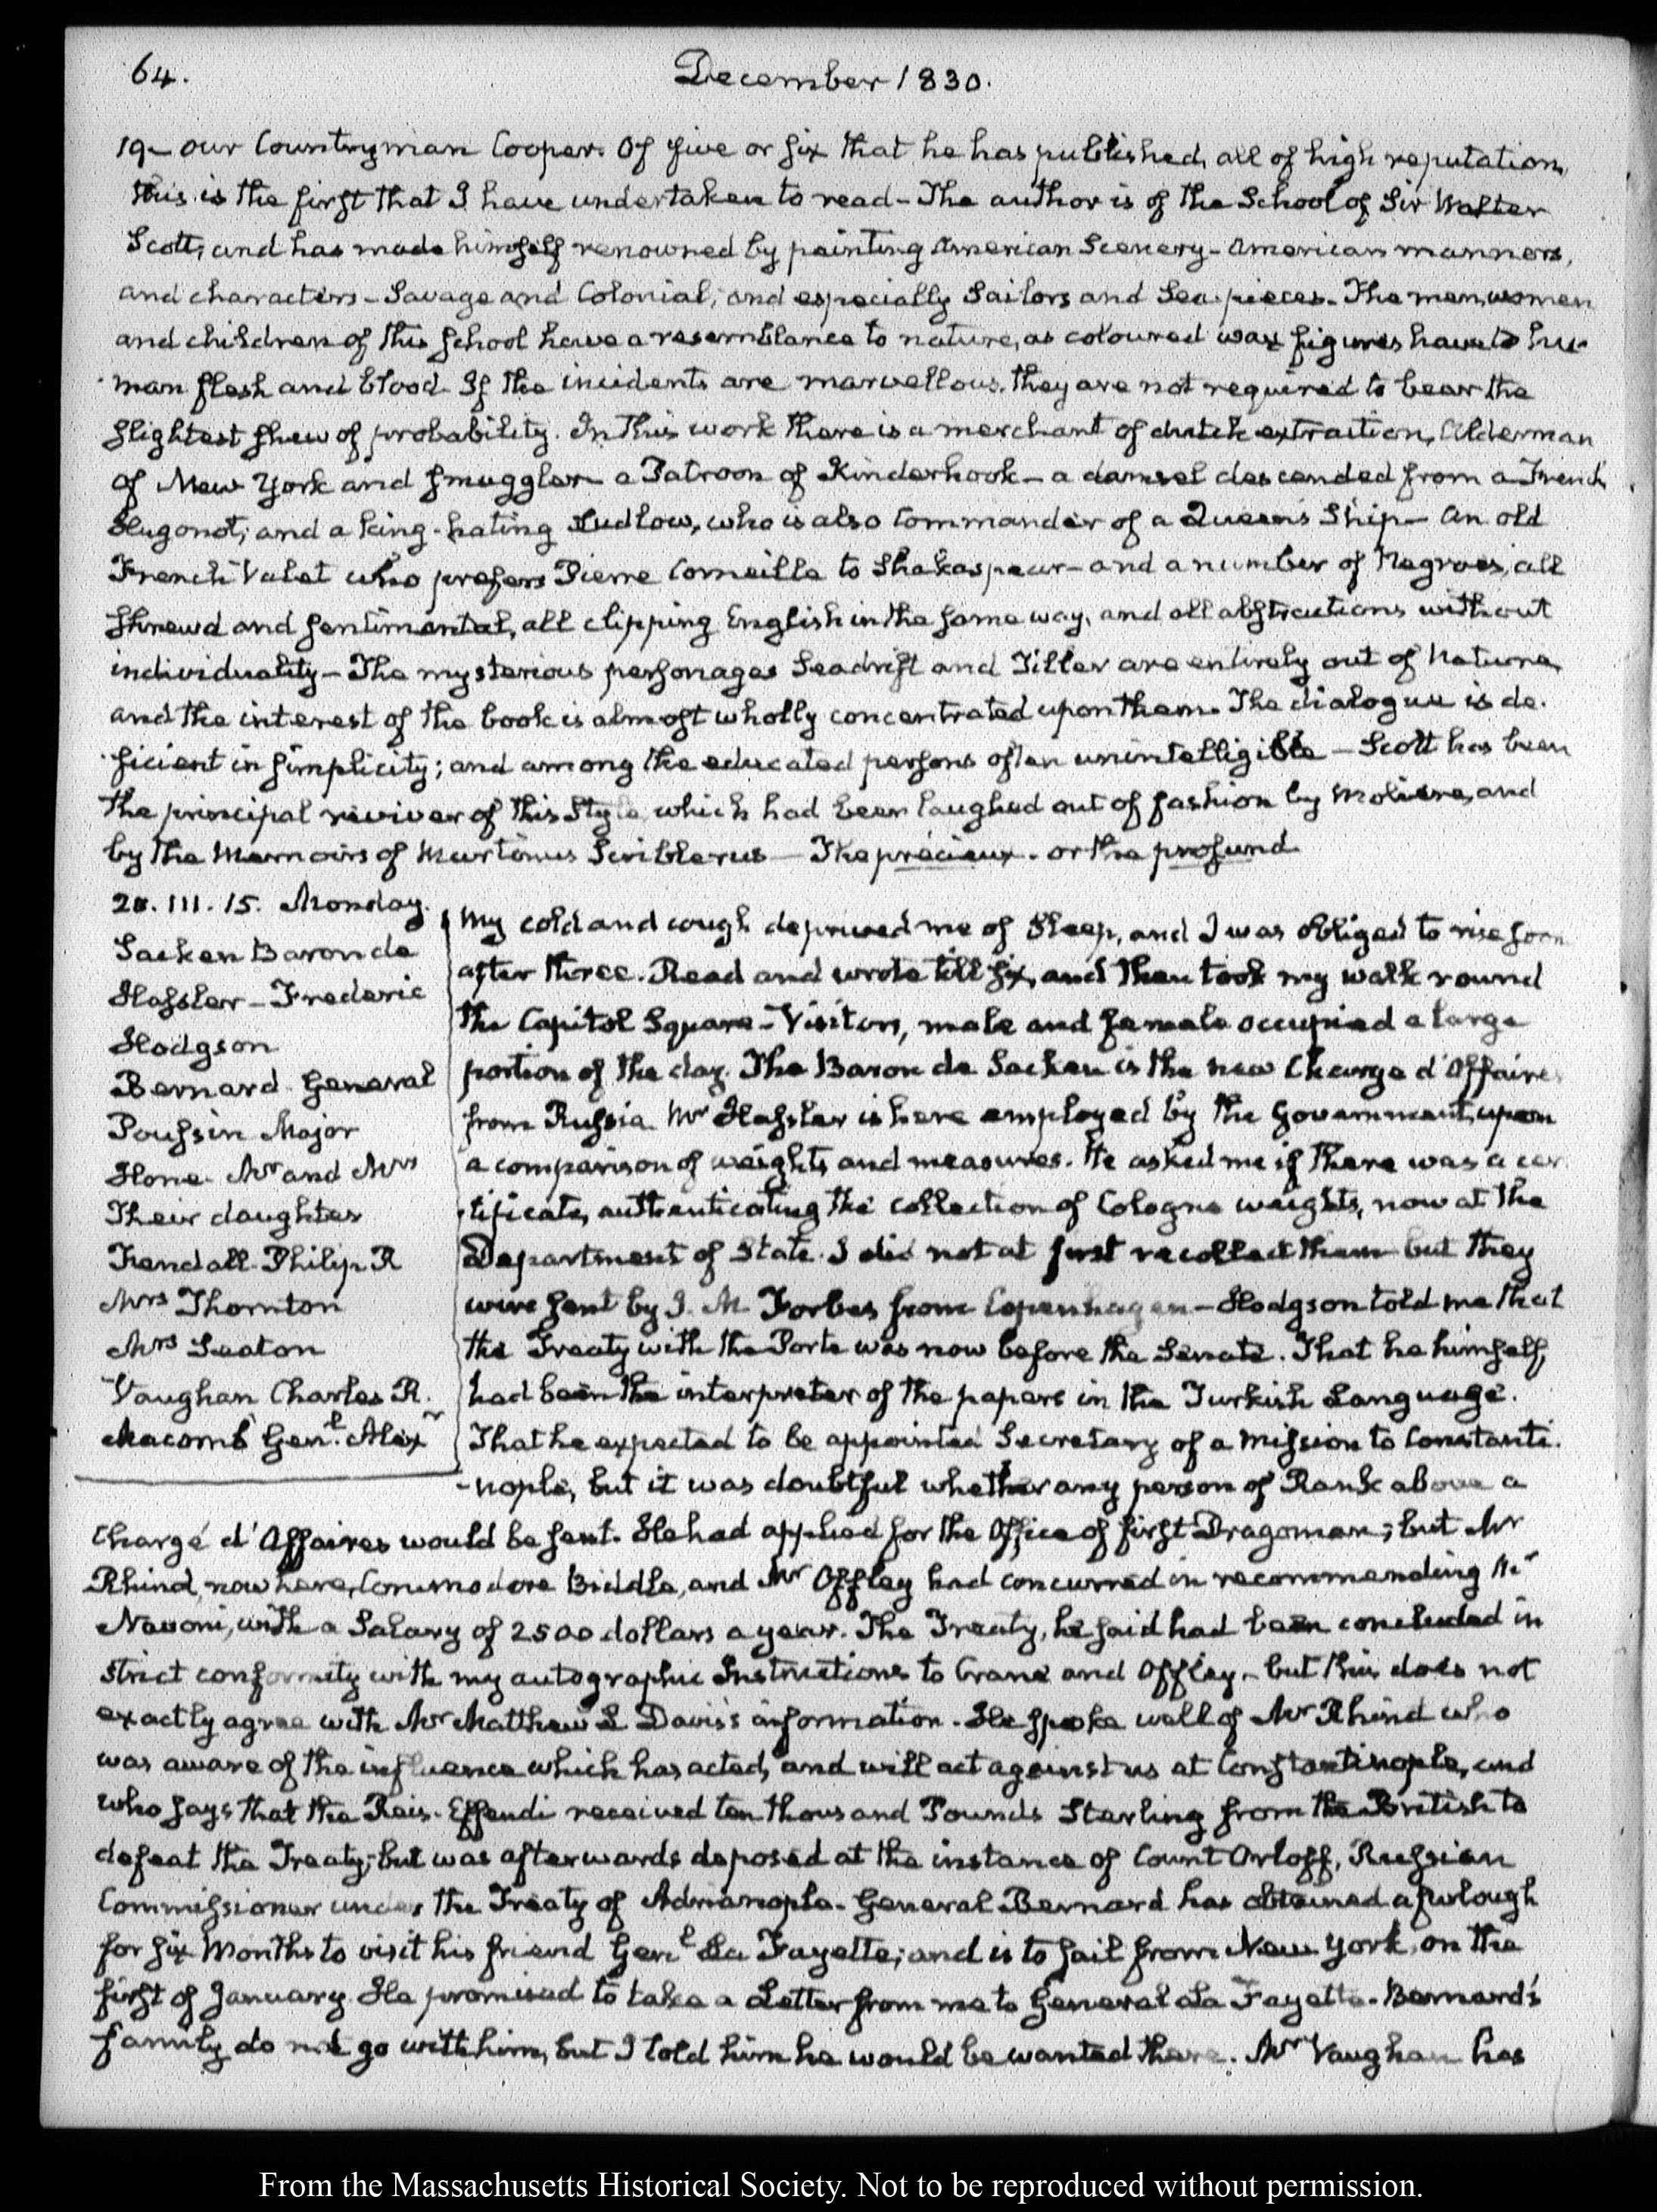 64.
December 1830.
19— our Countryman Cooper. Of five or six that he has published, all of high reputation,
this is the first that I have undertaken to read— The author is of the School of Sir Walter
Scott, and has made himself renowned by painting American Scenery— American manners,
and characters— Savage and Colonial, and especially Sailors and Sea-pieces. The men, women
and children of this school have a resemblance to nature, as coloured wax figures have to hu-
man flesh and blood. If the incidents are marvellous, they are not required to bear the
slightest shew of probability. In this work there is a merchant of dutch extraction, Alderman
of New York and smuggler— a Patroon of Kinderhook— a damsel descended from a French
Hugonot; and a king-hating Ludlow, who is also Commander of a Queen's Ship— An old
French Valet who prefers Pierre Corneille to Shakespear— and a number of Negroes, all
shrewd and sentimental, all clipping English in the same way, and all abstractions without
individuality— The mysterious personages Seadrift and Tiller are entirely out of Nature,
and the interest of the book is almost wholly concentrated upon them. The dialogue is de-
ficient in simplicity; and among the educated persons often unintelligible— Scott has been
the principal reviver of this Style, which had been laughed out of fashion by Moliere, and
by the Memoirs of Martinus Scriblerus— The précieux— or the profund
20. III. 15. Monday.
Sacken Baron de
Hassler— Frederic
Hodgson
Bernard General
Poussin Major
Hone— Mr and Mrs
Their daughter
Fendall Philip R
Mrs Thornton
Mrs Seaton
Vaughan Charles R.
Macomb Genl. Alexr
My cold and cough deprived me of Sleep, and I was obliged to rise soon
after three. Read and wrote till six, and then took my walk round
the Capitol Square— Visitors, male and female occupied a large
portion of the day. The Baron de Sacken is the new Charge d'Affaires
from Russia. Mr Hassler is here employed by the Government, upon
a comparison of weights and measures. He asked me if there was a cer-
tificate, authenticating the collection of Cologne weights, now at the
Department of State. I did not at first recollect them but they
were sent by J. M. Forbes from Copenhagen— Hodgson told me that
the Treaty with the Porte was now before the Senate. That he himself,
had been the interpreter of the papers in the Turkish Language.
That he expected to be appointed Secretary of a Mission to Constanti-
-nople, but it was doubtful whether any person of Rank above a
Chargé d'Affaires would be sent. He had applied for the Office of first Dragoman; but Mr
Rhind, now here, Commodore Biddle, and Mr Offley had concurred in recommending Mr
Navoni, with a Salary of 2500 dollars a year. The Treaty, he said had been concluded in
strict conformity with my autographic Instructions to Crane and Offley— but this does not
exactly agree with Mr Matthew L Davis's information. He spoke well of Mr Rhind who
was aware of the influence which has acted, and will act against us at Constantinople, and
who says that the Reis-Effendi received ten thousand Pounds Sterling from the British to
defeat the Treaty; but was afterwards deposed at the instance of Count Orloff, Russian
Commissioner under the Treaty of Adrianople. General Bernard has obtained a furlough
for six Months to visit his friend Genl La Fayette; and is to sail from New York, on the
first of January. He promised to take a Letter from me to General La Fayette. Bernard's
family do not go with him, but I told him he would be wanted there. Mr Vaughan has
From the Massachusetts Historical Society. Not to be reproduced without permission.